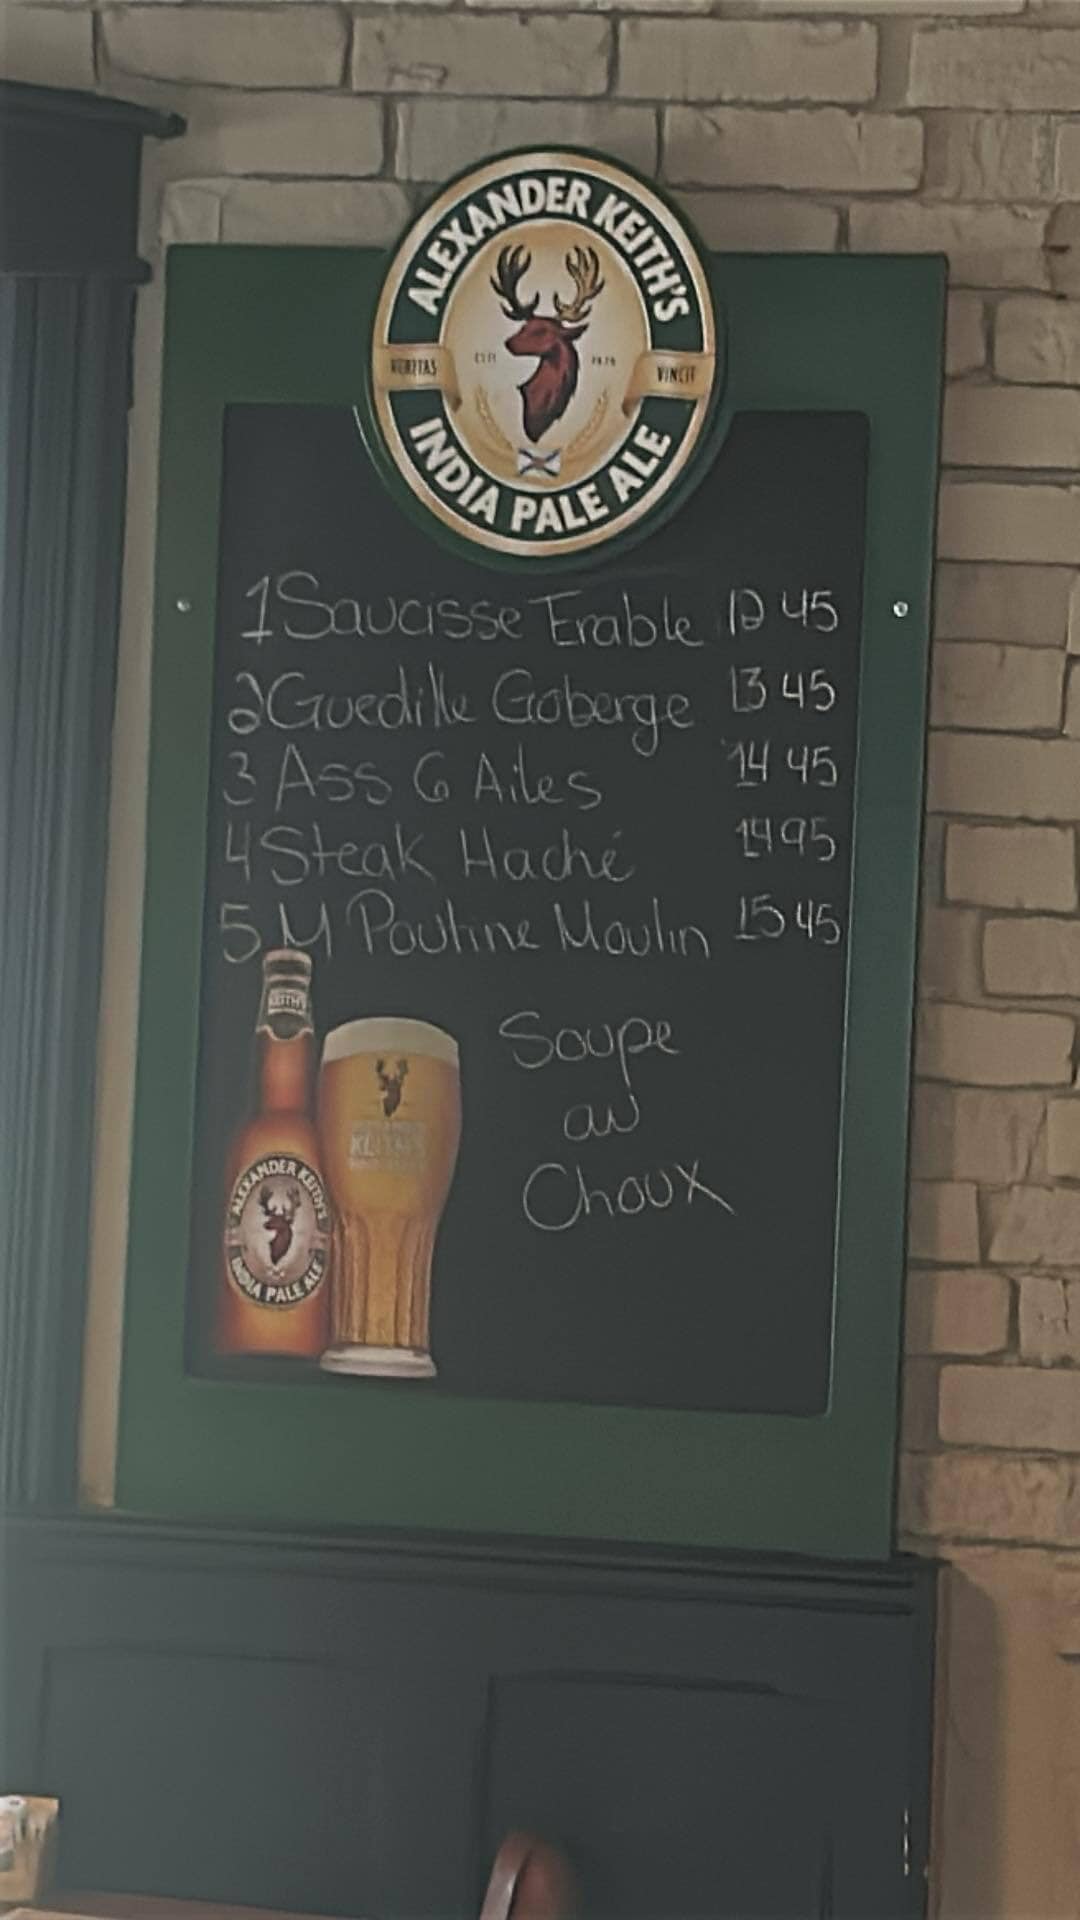 ALEXANDER KEITH'S
VERITAS VINCIT
INDIA PALE ALE
1 Saucisse Erable 12 45
2 Guedille Goberge 13 45
3 Ass 6 Ailes 14 45
4 Steak Haché 14 95
5 M Poutine Moulin 15 45
Soupe
au
Choux
KEITH'S
ALEXANDER
KEITH'S
ALEXANDER KEITH'S
INDIA PALE ALE